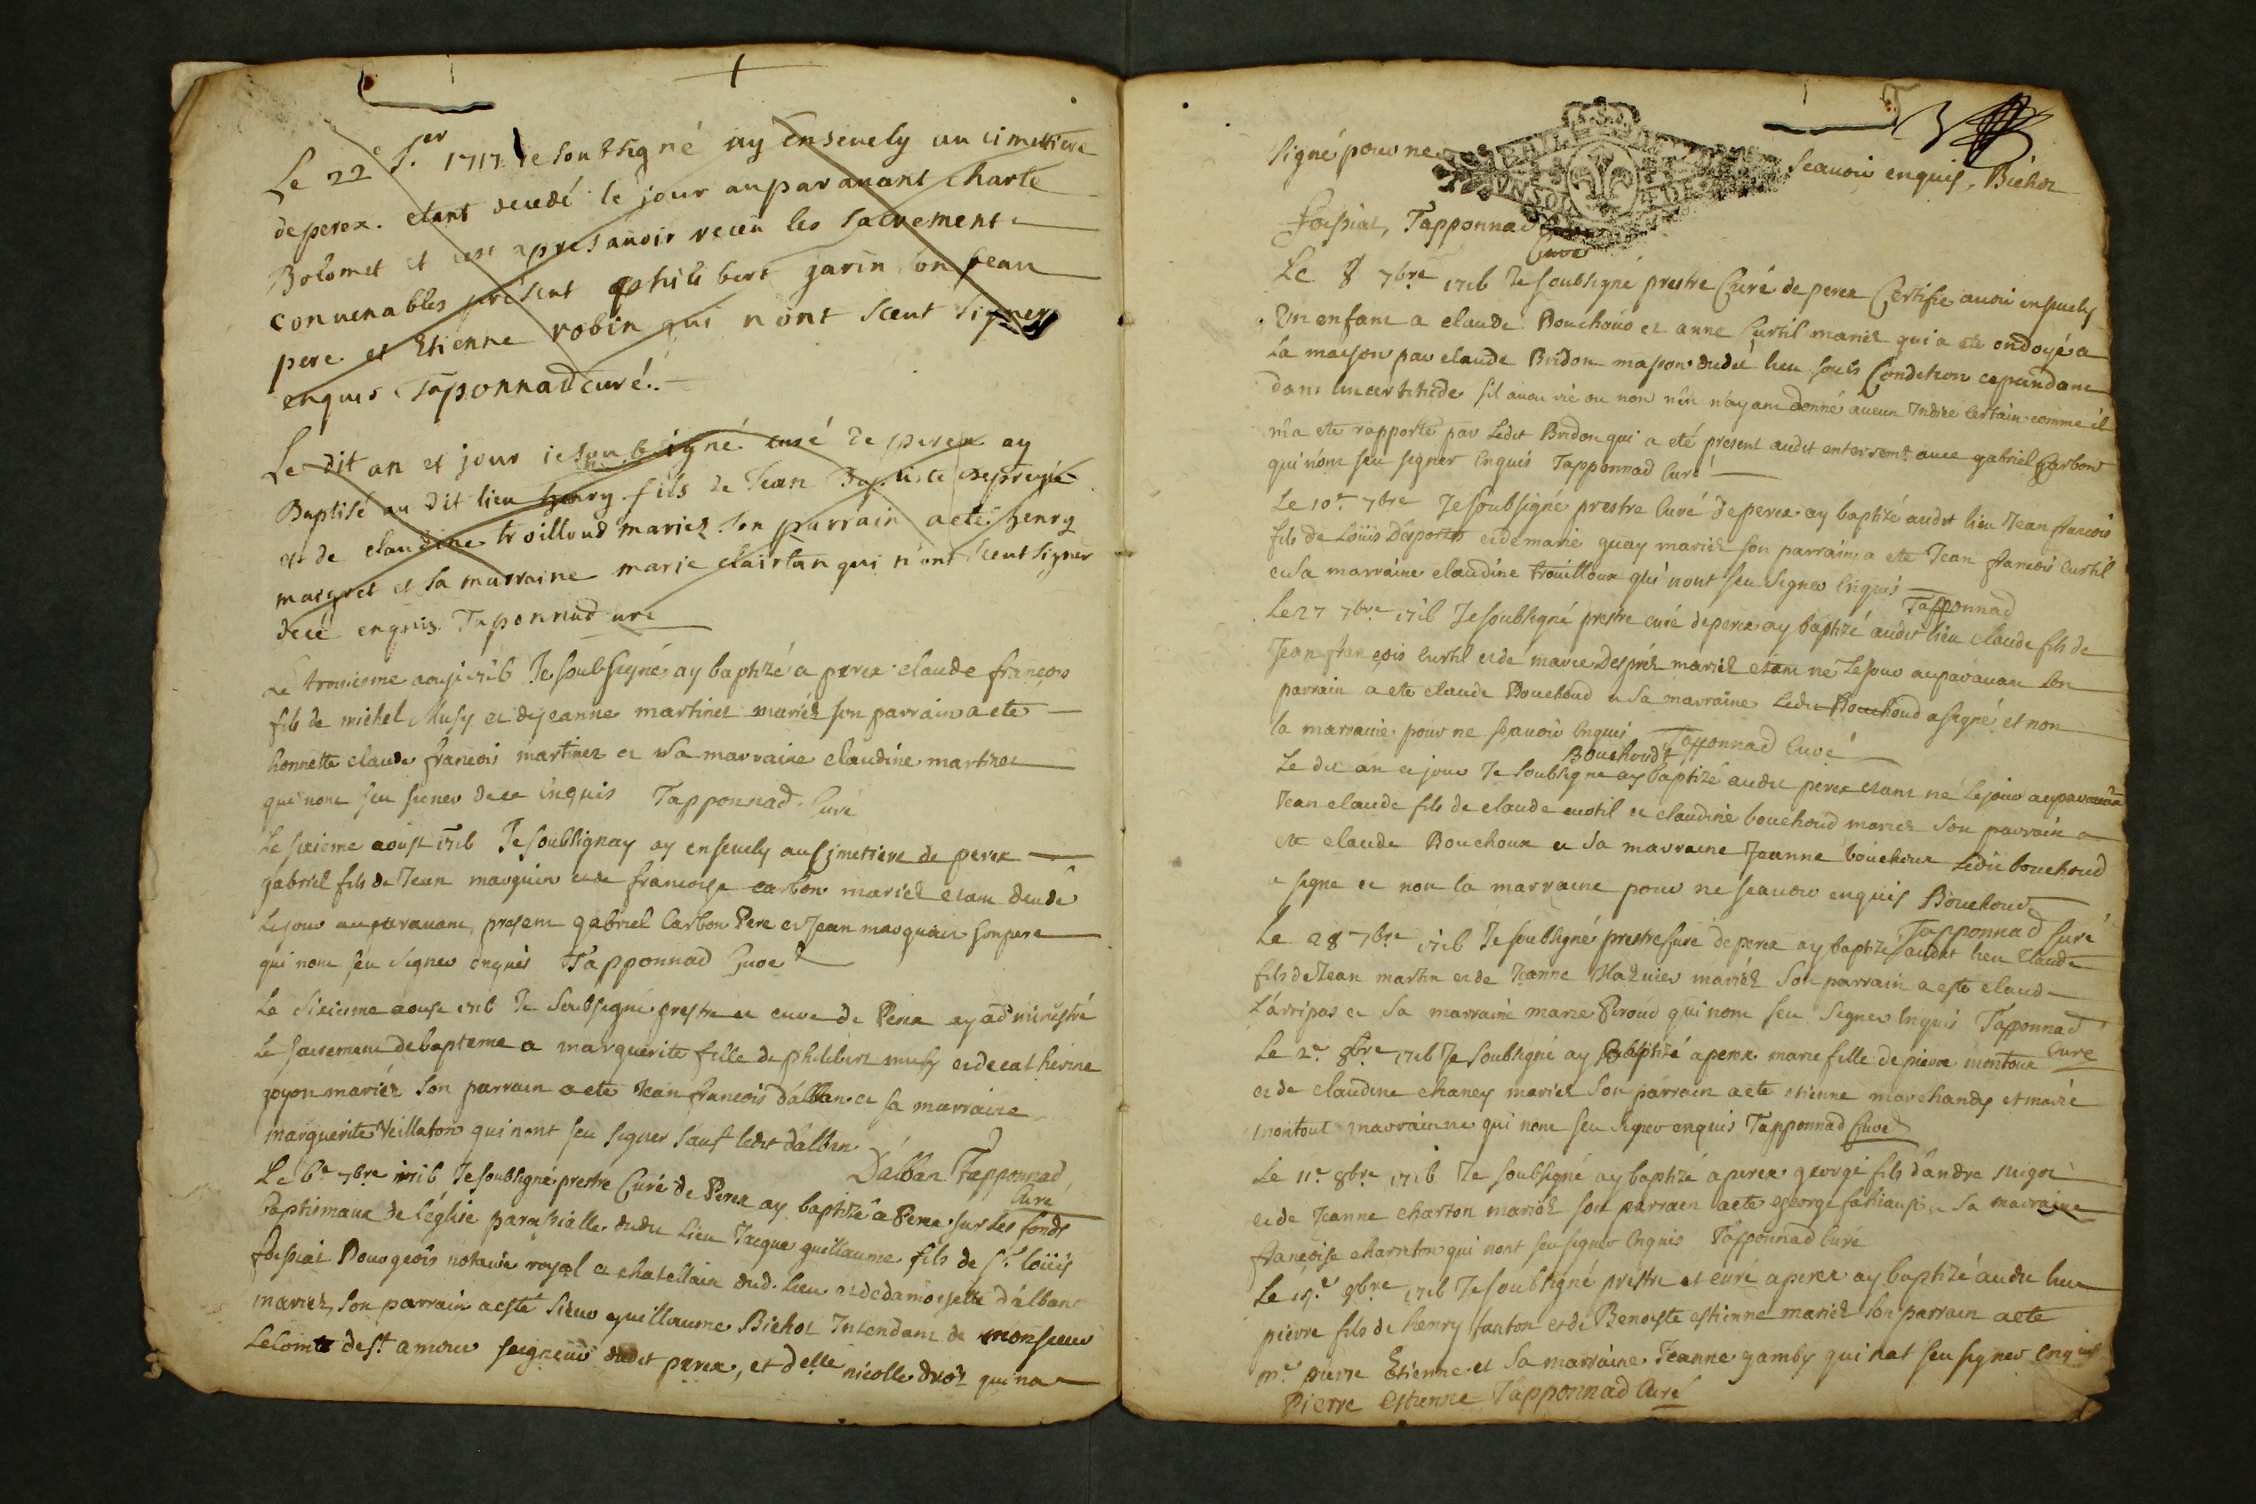 Le 22e J.er 1717 Je soubsigné ay Ensevely au cimettiere
de perex. etant decedé le jour auparavant Charle
Bolomet et ce apres avoir receu les sacrement
convenables présent philibert garin son beau
pere et Etienne robin qui n'ont sceut signer
enquis Taponnad curé.
Le dit an et jour ie soubsigné curé de perex ay
Baptisé au dit lieu henry fils de Jean Baptiste
et de claudine troilloud mariez son parrain a eté henry
maigret et sa marraine marie clairtan qui n'ont sceut signer
de ce enquis. Taponnud curé
Le troisieme aoust 1716 Je soubsigné ay baptizé a perex claude françois
fils de michel Musy et de jeanne martinet mariéz son parrain a eté
honnette claude françois martinet et sa marraine claudine martinet
qui nont seu signer de ce enquis Tapponnad Curé
Le sixieme aoust 1716 Je soubsignay ay ensevely au Cimetiere de perex
gabriel fils de Jean mauguin et de francoise carbon mariez etant decedé
le jour auparavant, present gabriel Carbon Pere et Jean mauguin son pere
qui nont seu signer enquis Tapponnad Curé
Le sixieme aoust 1716 Je soubsigné prestre et curé de Perex ay administré
le sacrement de bapteme a marguerite fille de philibert musy et de catherine
goyon mariéz son parrain a eté Jean francois d'alban et sa marraine
marguerite Veillaton qui nont seu signer sauf ledit d'alban
D'alban Tapponnad
Curé
Le 6e 7bre 1716 Je soubsigné prestre Curé de Perex ay baptizé a Perex sur les fonds
baptismaux de l'église parroissialle dudit lieu Jacque guillaume fils de sr. loüis
foissiat Bourgeois notaire royal et chatellain dud. lieu et de damoiselle d'alban
mariez, son parrain a esté sieur guillaume Bichot Intendant de monsieur
Le Comte de st. amour seigneur dudit perex, et delle nicolle droz qui na
signé pour ne scavoir enquis. Bichot
foissiat, Tapponnad
Curé
Le 8 7bre 1716 Je soubsigné prestre Curé de perex Certifie avoir ensevely
Un enfant a claude Bouchoud et anne Curtil mariez qui a eté ondoyé a
la maison par claude Bridon masson dudit lieu soubs Condition cependant
dans lincertitude s'il avoit vie ou non nen n'ayant donné aucun Indice Certain comme il
m'a eté rapporté par ledit Bridon qui a eté present audit enterremt. avec gabriel Carbon
qui n'ont seu signer Enquis Tapponnad Curé
Le 10e 7bre Je soubsigné prestre Curé de perex ay baptizé audit lieu Jean francois
fils de Loüis Desportes et de marie guay mariez son parrain a eté Jean francois Curtil
et sa marraine claudine trouilloux qui nont seu signer Enquis
Tapponnad
Le 27 7bre 1716 Je soubsigné prestre curé de perex ay baptizé audit lieu claude fils de
Jean françois Curtil et de marie Desprez mariez etant né le jour auparavant son
parrain a eté claude Bouchoud et sa marraine Ledit Bouchoud a signé et non
la marraine pour ne scavoir Enquis Tapponnad Curé
Bouchoud
Le dit an et jour Je soubsigné ay baptizé audit perex etant né le jour auparavant
Jean claude fils de claude curtil et claudine bouchoud mariez son parrain a
eté claude Bouchoux et sa marraine Jeanne boucheux Ledit bouchoud
a signé et non la marraine pour ne scavoir enquis Bouchoud
Tapponnad Curé
Le 28 7bre 1716 Je soubsigné prestre Curé de perex ay baptizé audit lieu Claude
fils de Jean martin et de Jeanne Mazuier mariéz son parrain a esté claude
Larripas et sa marraine marie Piroud qui nont seu signer Enquis Tapponnad
Curé
Le 2e 8bre 1716 Je soubsigné ay baptizé a perex marie fille de pierre montoux
et de claudine chaney mariez son parrain a eté etienne marchandy et marie
montoux marraine qui nont seu signer enquis Tapponnad Curé
Le 11e 8bre 1716 Je soubsigné ay baptizé a perex george fils d'andre
et de Jeanne charton mariéz son parrain a eté george et sa marraine
francoise charreton qui nont seu signer Enquis Tapponnad Curé
Le 9bre 1716 Je soubsigné prestre et curé a perex ay baptizé audit lieu
pierre fils de henry fanton et de Benoiste estienne mariez son parrain a eté
me. pierre Etienne et sa marraine Jeanne gamby qui nat seu signer Enquis
Pierre Estienne Tapponnad Curé